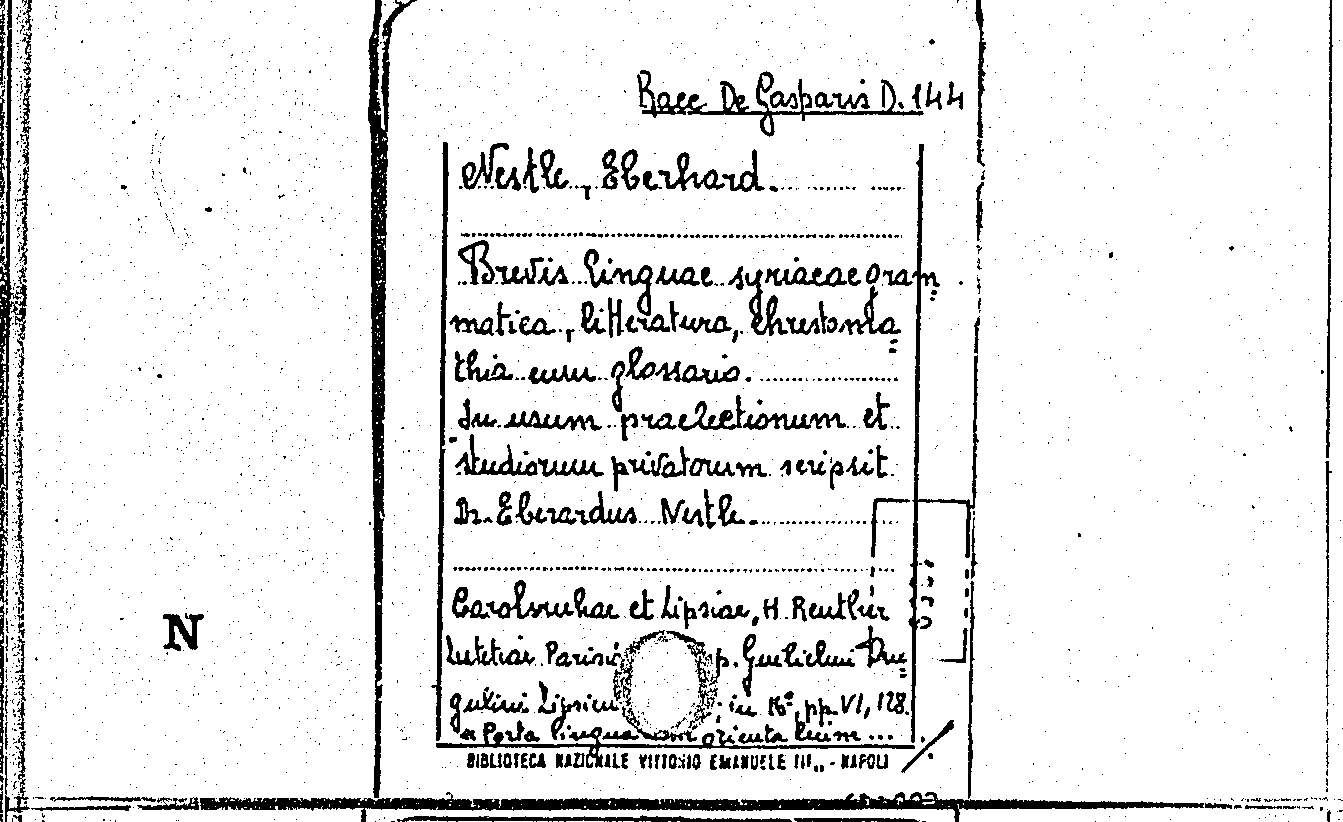 Racc. De Gasparis D. 144
Nestle, Eberhard.
Brevis linguae syriacae gram=
matica, litteratura, chrestoma=
thia cum glossario.
In usum praelectionum et
studiorum privatorum scripsit
Dr. Eberardus Nestle.
Carolsruhae et Lipsiae, H. Reuther
Lutetiae Parisi p. Guilielmi Dru=
gulini Lipsiae ; in 16°, pp. VI, 128.
N
« Porta lingua orientalium ...
BIBLIOTECA NAZIONALE VITTORIO EMANUELE III,, - NAPOLI